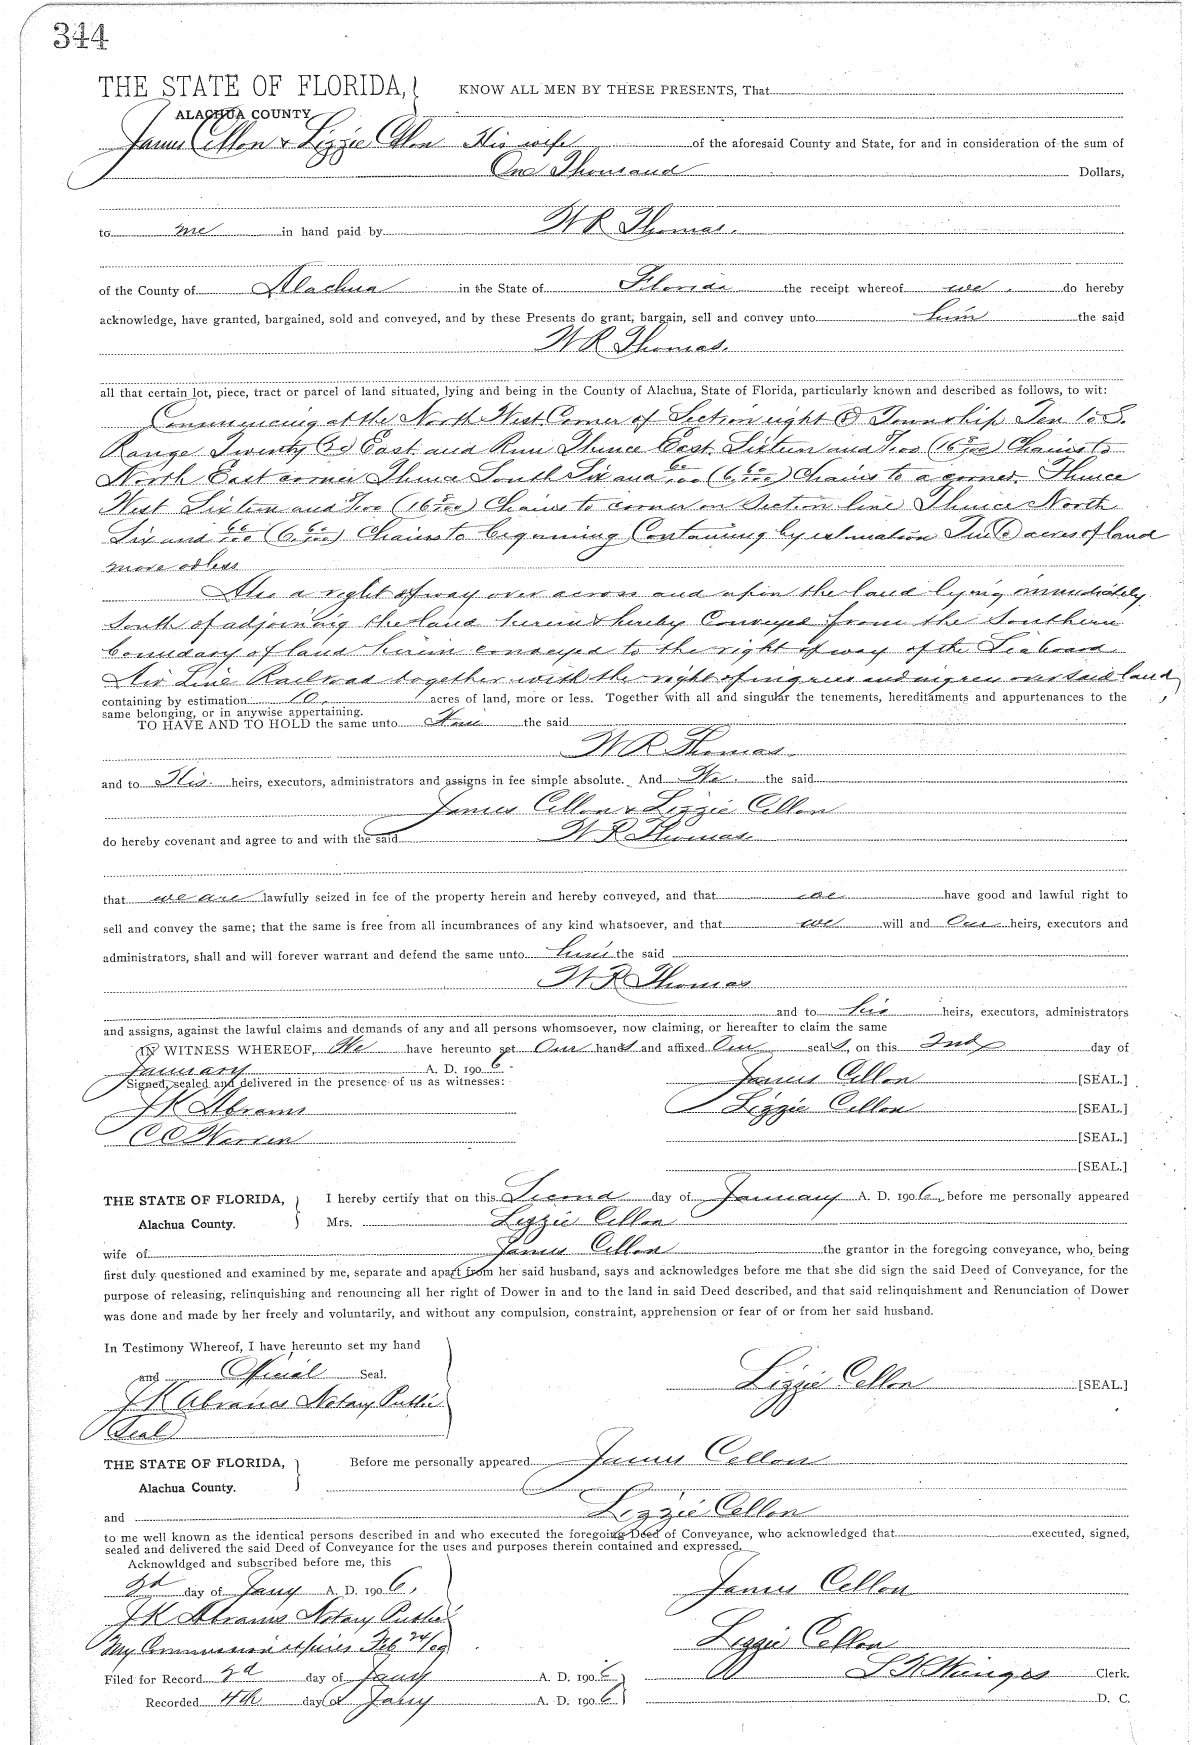 344
THE STATE OF FLORIDA, KNOW ALL MEN BY THESE PRESENTS, That
ALACHUA COUNTY
James Cellon & Lizzie Cellon His wife of the aforesaid County and State, for and in consideration of the sum of
One Thousand Dollars,
to me in hand paid by W R Thomas.
of the County of Alachua in the State of Florida the receipt whereof we do hereby
acknowledge, have granted, bargained, sold and conveyed, and by these Presents do grant, bargain, sell and convey unto him the said
W R Thomas.
all that certain lot, piece, tract or parcel of land situated, lying and being in the County of Alachua, State of Florida, particularly known and described as follows, to wit:
Commencing at the North West Corner of Section eight (8) Township Ten 10 S.
Range Twenty (20) East and Run Thence East Sixteen and (16 Chains to
North East corner Thence South Six and 60/100 (6 60/100) Chains to a corner. Thence
West Sixteen and (16 Chains to corner on Section line Thence North
Six and 60/100 (6 60/100) Chains to beginning Containing by estimation Ten (10) acres of land
more or less
Also a right of way over across and upon the land lying immediately
South of adjoining the land herein & hereby Conveyed from the Southern
boundary of land herein conveyed to the right of way of the Seaboard
Air Line Railroad together with the right of ingress and egress on said land,
containing by estimation 10 acres of land, more or less. Together with all and singular the tenements, hereditaments and appurtenances to the
same belonging, or in anywise appertaining.
TO HAVE AND TO HOLD the same unto the said
W R Thomas
and to His heirs, executors, administrators and assigns in fee simple absolute. And We the said
James Cellon & Lizzie Cellon
do hereby covenant and agree to and with the said W R Thomas.
that we are lawfully seized in fee of the property herein and hereby conveyed, and that we have good and lawful right to
sell and convey the same; that the same is free from all incumbrances of any kind whatsoever, and that we will and Our heirs, executors and
administrators, shall and will forever warrant and defend the same unto him the said
W R Thomas
and to his heirs, executors, administrators
and assigns, against the lawful claims and demands of any and all persons whomsoever, now claiming, or hereafter to claim the same
IN WITNESS WHEREOF, We have hereunto set Our hands and affixed Our seals, on this 2nd day of
January A. D. 1906
Signed, sealed and delivered in the presence of us as witnesses: James Cellon [SEAL.]
J K Abrams Lizzie Cellon [SEAL.]
C C Warren [SEAL.]
[SEAL.]
THE STATE OF FLORIDA, I hereby certify that on this Second day of January A. D. 1906, before me personally appeared
Alachua County. Mrs. Lizzie Cellon
wife of James Cellon the grantor in the foregoing conveyance, who, being
first duly questioned and examined by me, separate and apart from her said husband, says and acknowledges before me that she did sign the said Deed of Conveyance, for the
purpose of releasing, relinquishing and renouncing all her right of Dower in and to the land in said Deed described, and that said relinquishment and Renunciation of Dower
was done and made by her freely and voluntarily, and without any compulsion, constraint, apprehension or fear of or from her said husband.
In Testimony Whereof, I have hereunto set my hand
and Official Seal. Lizzie Cellon [SEAL.]
J K Abrams Notary Public
Seal
THE STATE OF FLORIDA, Before me personally appeared James Cellon
Alachua County.
and Lizzie Cellon
to me well known as the identical persons described in and who executed the foregoing Deed of Conveyance, who acknowledged that executed, signed,
sealed and delivered the said Deed of Conveyance for the uses and purposes therein contained and expressed.
Acknowldged and subscribed before me, this
2d day of Jany A. D. 1906, James Cellon
J K Abrams Notary Public
My Commission expires Feb 24/09 Lizzie Cellon
Filed for Record 2d day of Jany A. D. 1906 S H Wienges Clerk.
Recorded 4th day of Jany A. D. 1906 D. C.